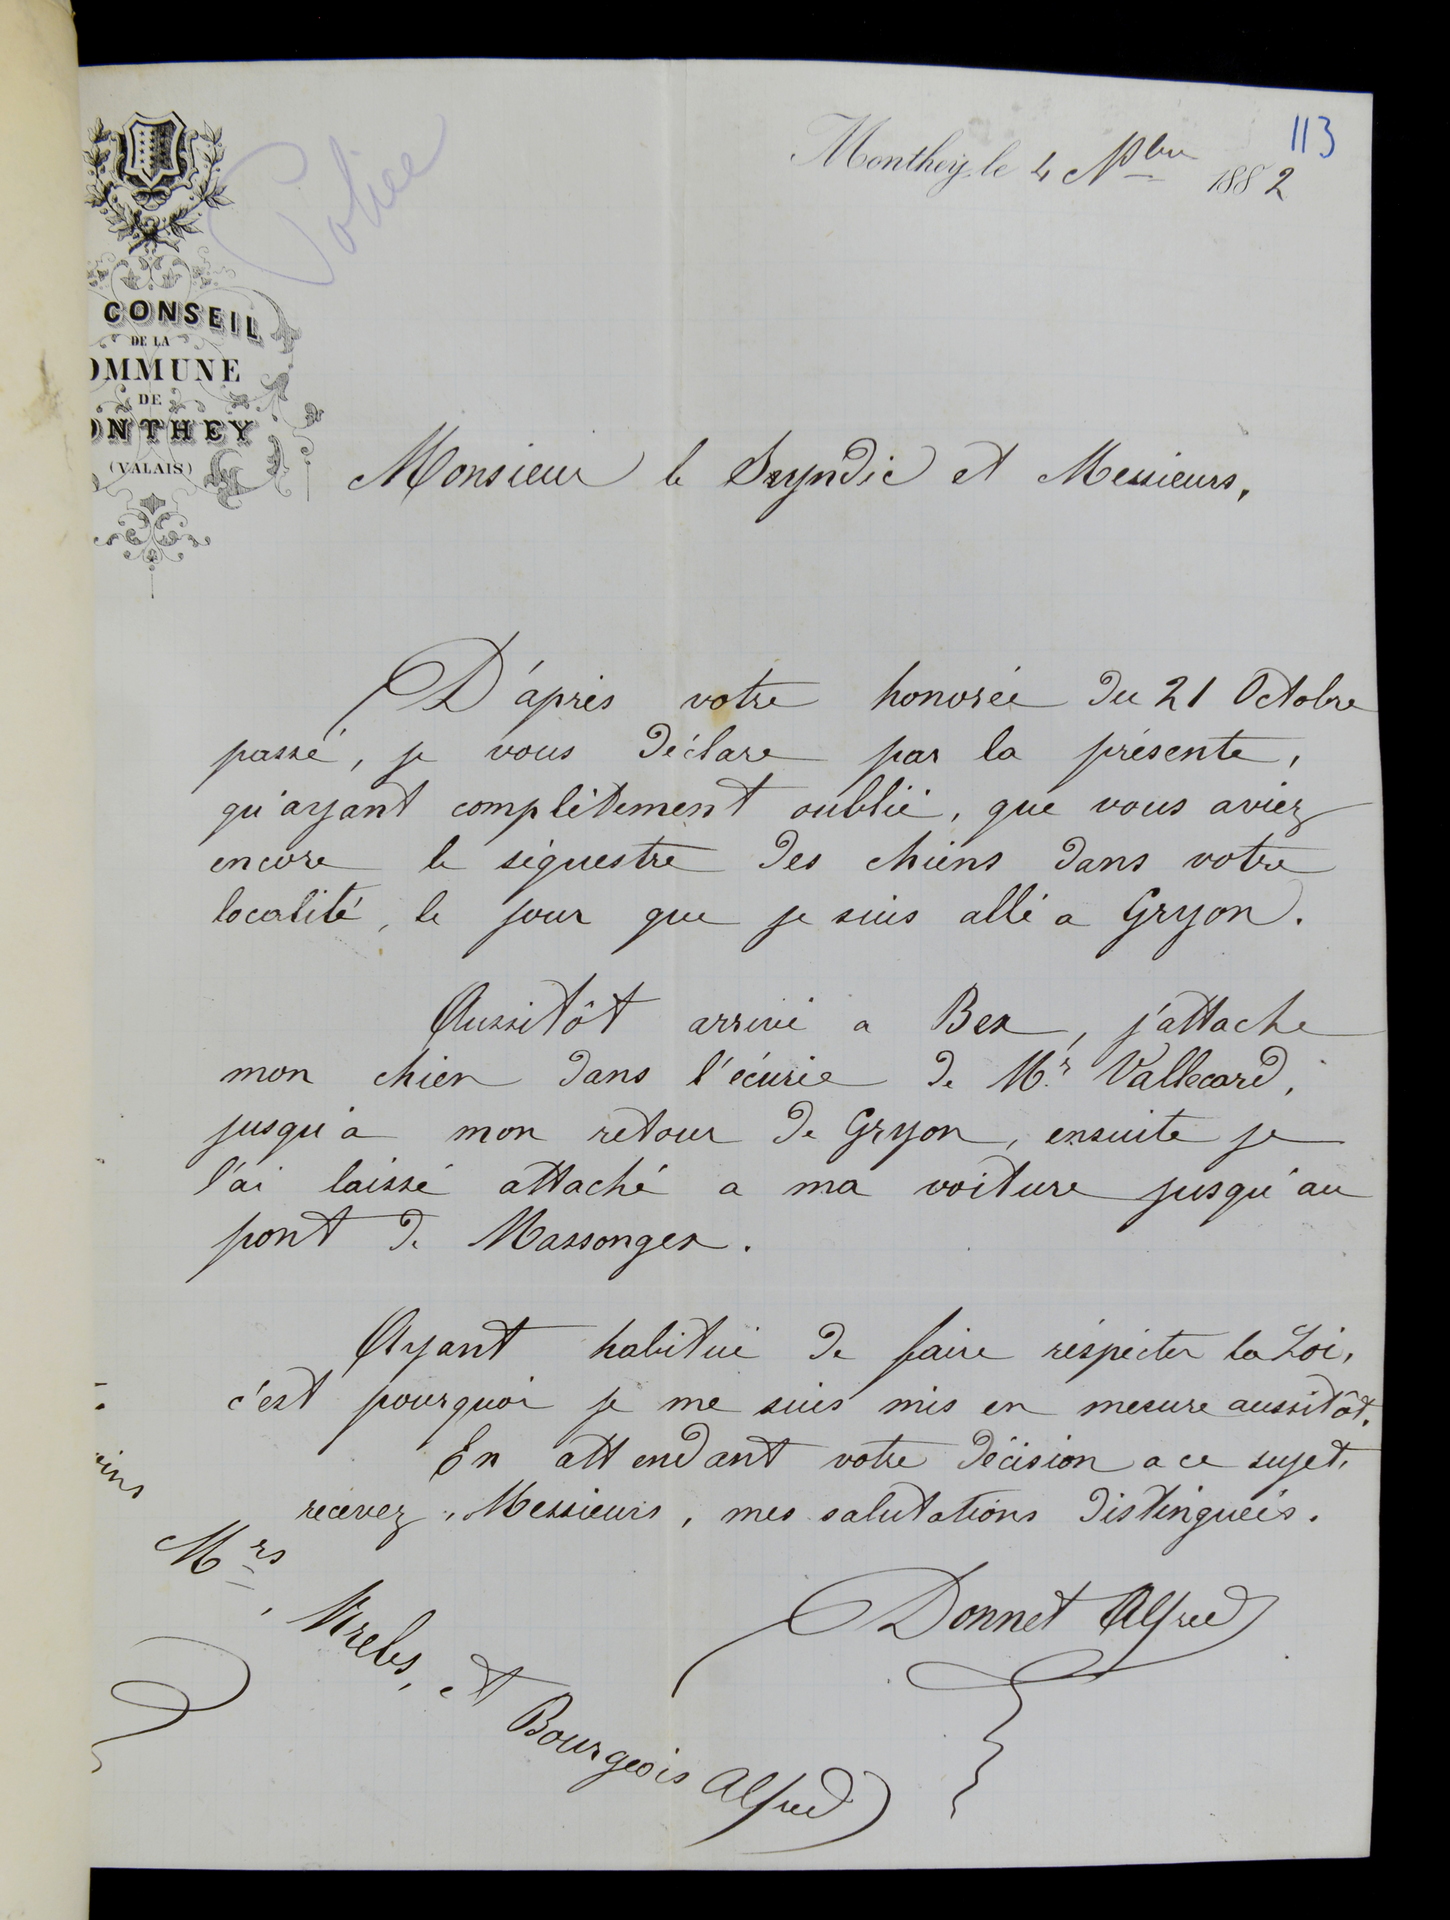 113
Police
Monthey, le 4 Nbre 1882
CONSEIL
DE LA
OMMUNE
DE
ONTHEY
(VALAIS)
Monsieur le Syndic et Messieurs,
D'après votre honorée du 21 Octobre
passé, je vous déclare par la présente,
qu'ayant complètement oublié, que vous aviez
encore le séquestre des chiens dans votre
localité, le jour que je suis allé a Gryon.
Aussitôt arrivé a Bex, j'attache
mon chien dans l'écurie de Mr Vallecard,
jusqu'a mon retour de Gryon, ensuite je
l'ai laissé attaché a ma voiture jusqu'au
pont de Massongex.
Ayant habitué de faire réspecter la Loi,
c'est pourquoi je me suis mis en mesure aussitôt.
En attendant votre décision a ce sujet,
recevez, Messieurs, mes salutations distinguéis.
Donnet Alfred
oins
Mrs, Krebs, et Bourgeois Alfred